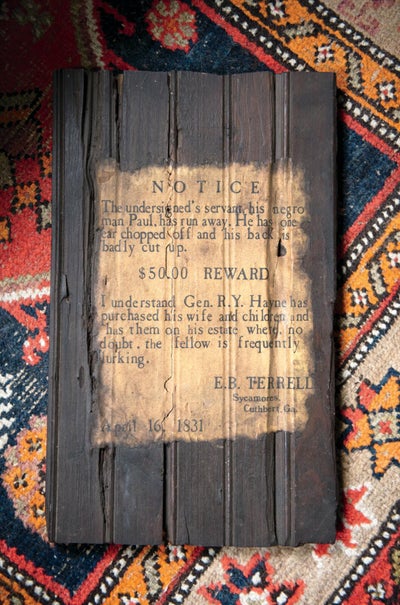 NOTICE
The undersigned's servant, his negro
man Paul, has run away. He has one
ear chopped off and his back is
badly cut up.
$50.00 REWARD
I understand Gen. R.Y. Hayne has
purchased his wife and children and
has them on his estate where, no
doubt, the fellow is frequently
lurking.
E.B. TERRELL
Sycamores
Cuthbert, Ga.
April 16, 1831